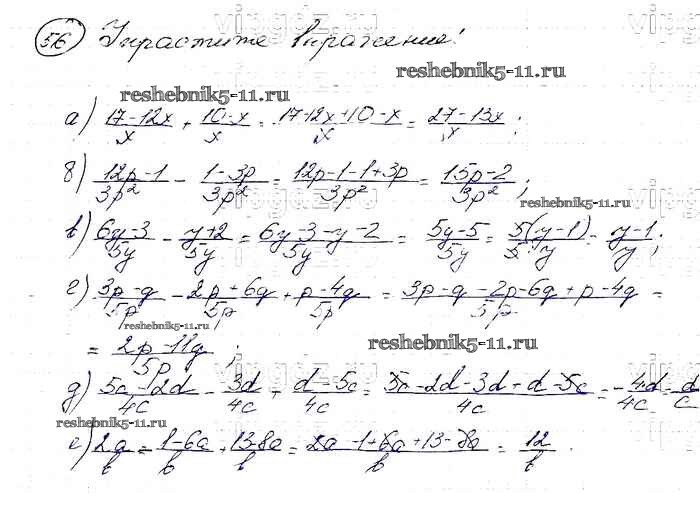 56 Упростите выражение!
reshebnik5-11.ru
reshebnik5-11.ru
а) (17-12x)/x + (10-x)/x = (17-12x+10-x)/x = (27-13x)/x ;
б) (12p-1)/3p² - (1-3p)/3p² = (12p-1-1+3p)/3p² = (15p-2)/3p² ;
reshebnik5-11.ru
в) (6y-3)/5y - (y+2)/5y = (6y-3-y-2)/5y = (5y-5)/5y = 5(y-1)/5y = (y-1)/y ;
г) (3p-q)/5p - (2p+6q)/5p + (p-4q)/5p = (3p-q-2p-6q+p-4q)/5p =
reshebnik5-11.ru
reshebnik5-11.ru
= (2p-11q)/5p ;
д) (5c-2d)/4c - 3d/4c + (d-5c)/4c = (5c-2d-3d+d-5c)/4c = -4d/4c = -d/c
reshebnik5-11.ru
reshebnik5-11.ru
е) 2a/b - (1-6a)/b + (13-8a)/b = (2a-1+6a+13-8a)/b = 12/b .